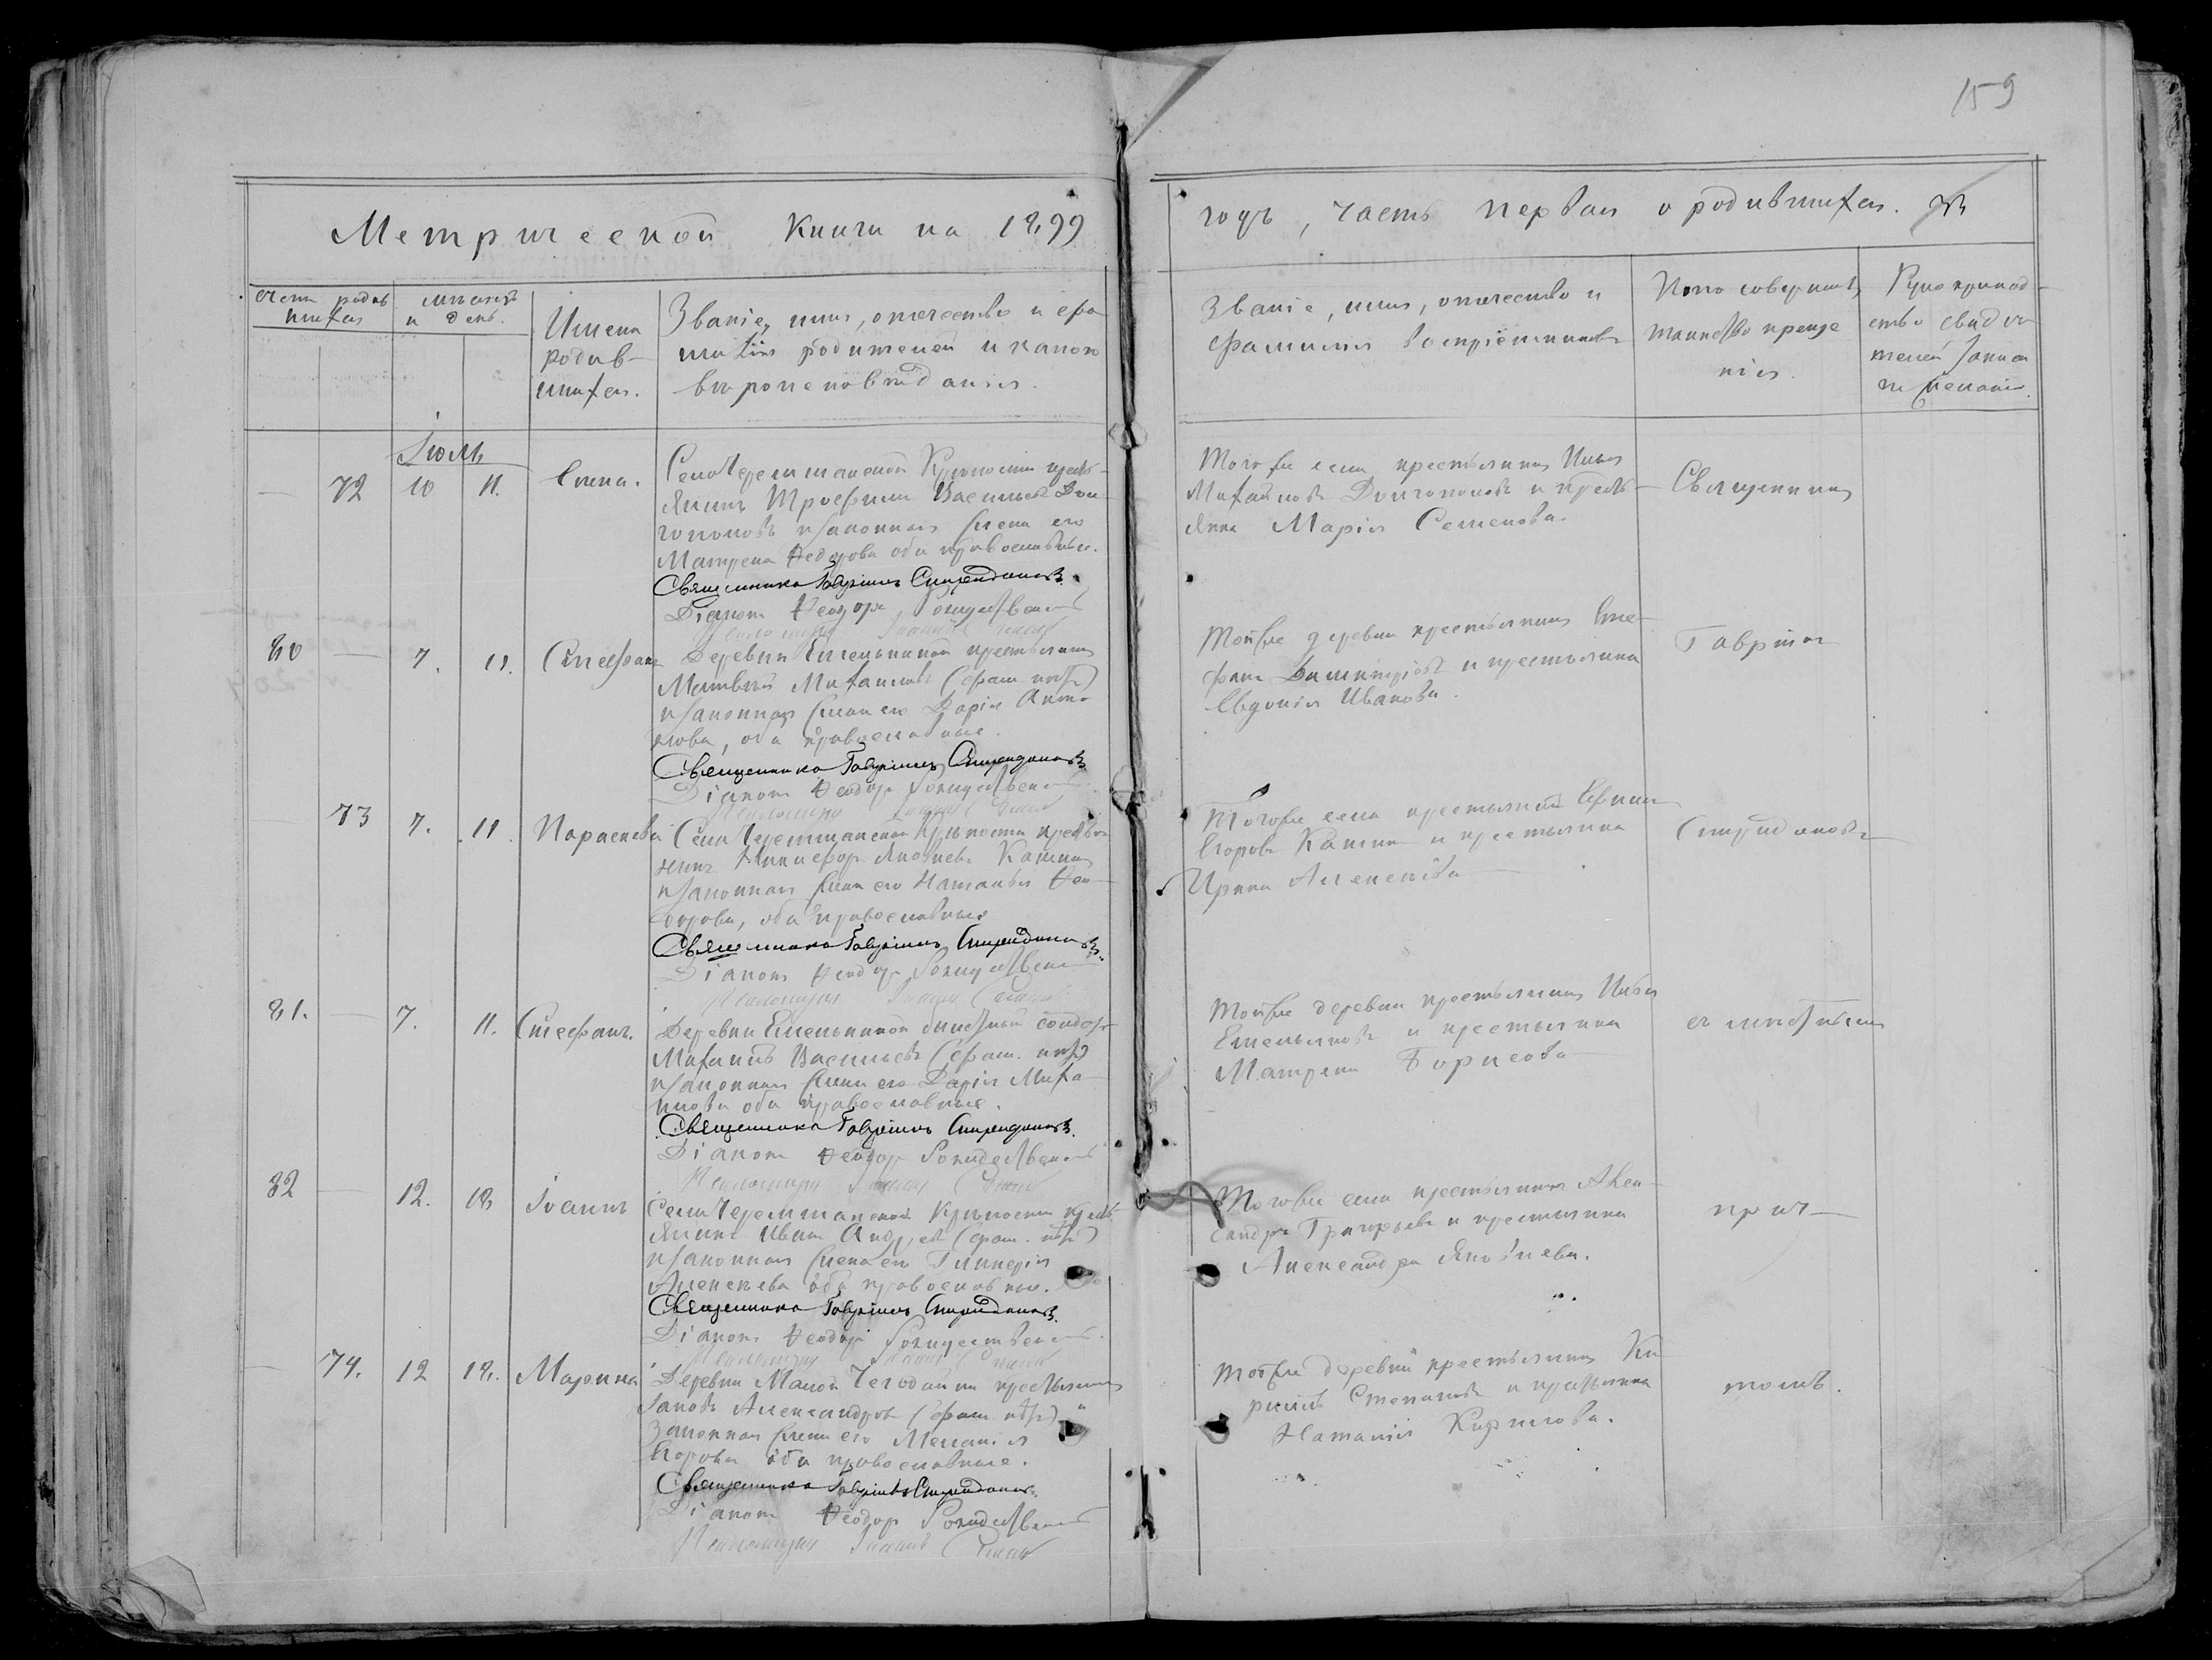 159
Метрической Книги на 1899
годъ, часть первая о родившихся.
счетъ родив
шихся
мѣсяцъ
и день.
Имена
родив-
шихся.
Званіе, имя, отчество и фа
милія родителей и какого
вѣроисповѣданія.
Званіе, имя, отчество и
фамилія воспріемниковъ
Кто совершилъ
таинство креще
нія.
Рукоприклад-
ство свидѣ
телей записи
по желанію.
Іюль
— 72 10 11. Елена.
Села Черемшанской Крѣпости кресть-
янинъ Трофимъ Васильевъ Дол
гополовъ и законная жена его
Матрена Ѳедорова оба православные.
Священникъ Гавріилъ Спиридоновъ.
Діаконъ Ѳеодоръ Рождественскій
Псаломщикъ
Того же села крестьянинъ Илья
Михайловъ Долгополовъ и кресть-
янка Марія Семенова.
Священникъ
80 — 7. 11. Стефанъ
Деревни Емелькиной крестьянинъ
Матвей Михайловъ (фам. нѣтъ)
и законная жена его Дарія Анто
нова, оба православные.
Священникъ Гавріилъ Спиридоновъ
Діаконъ Ѳеодоръ Рождественскій
Псаломщикъ
Той же деревни крестьянинъ Сте-
фанъ Димитріевъ и крестьянка
Евдокія Иванова.
Гавріилъ
73 7. 11. Параскева
Села Черемшанской Крѣпости крестья
нинъ Никифоръ Яковлевъ Качкинъ
и законная жена его Наталья Ѳео
дорова, оба православные
Священникъ Гавріилъ Спиридоновъ.
Діаконъ Ѳеодоръ Рождественскій
Псаломщикъ
Того же села крестьянинъ
Егоровъ и крестьянка
Ирина Алексеева
Спиридоновъ
81. — 7. 11. Стефанъ.
Деревни Емелькиной билетный солдатъ
Михаилъ Васильевъ (фам. нѣтъ)
и законная жена его Дарія Миха
илова оба православные.
Священникъ Гавріилъ Спиридоновъ.
Діаконъ Ѳеодоръ Рождественскій
Псаломщикъ
Той же деревни крестьянинъ Илья
Емельяновъ и крестьянка
Матрена Борисова
съ мѣстнымъ
82 — 12. 18 Іоаннъ
Села Черемшанской Крѣпости кресть
янинъ Иванъ Андреевъ (фам. нѣтъ)
и законная жена его Гликерія
Алексеева оба православные.
Священникъ Гавріилъ Спиридоновъ.
Діаконъ Ѳеодоръ Рождественскій.
Псаломщикъ
Того же села крестьянинъ Алек
сандръ Григорьевъ и крестьянка
Александра Яковлева.
прич—
— 74. 12 18. Марина
Деревни Малой Чегодайки крестьянинъ
Яковъ Александровъ (фам. нѣтъ) и
законная жена его Меланія
Егорова оба православные.
Священникъ Гавріилъ Спиридоновъ
Діаконъ Ѳеодоръ Рождественскій
Псаломщикъ
Той же деревни крестьянинъ Ки
риллъ Степановъ и крестьянка
Наталія Кирилова.
томъ.